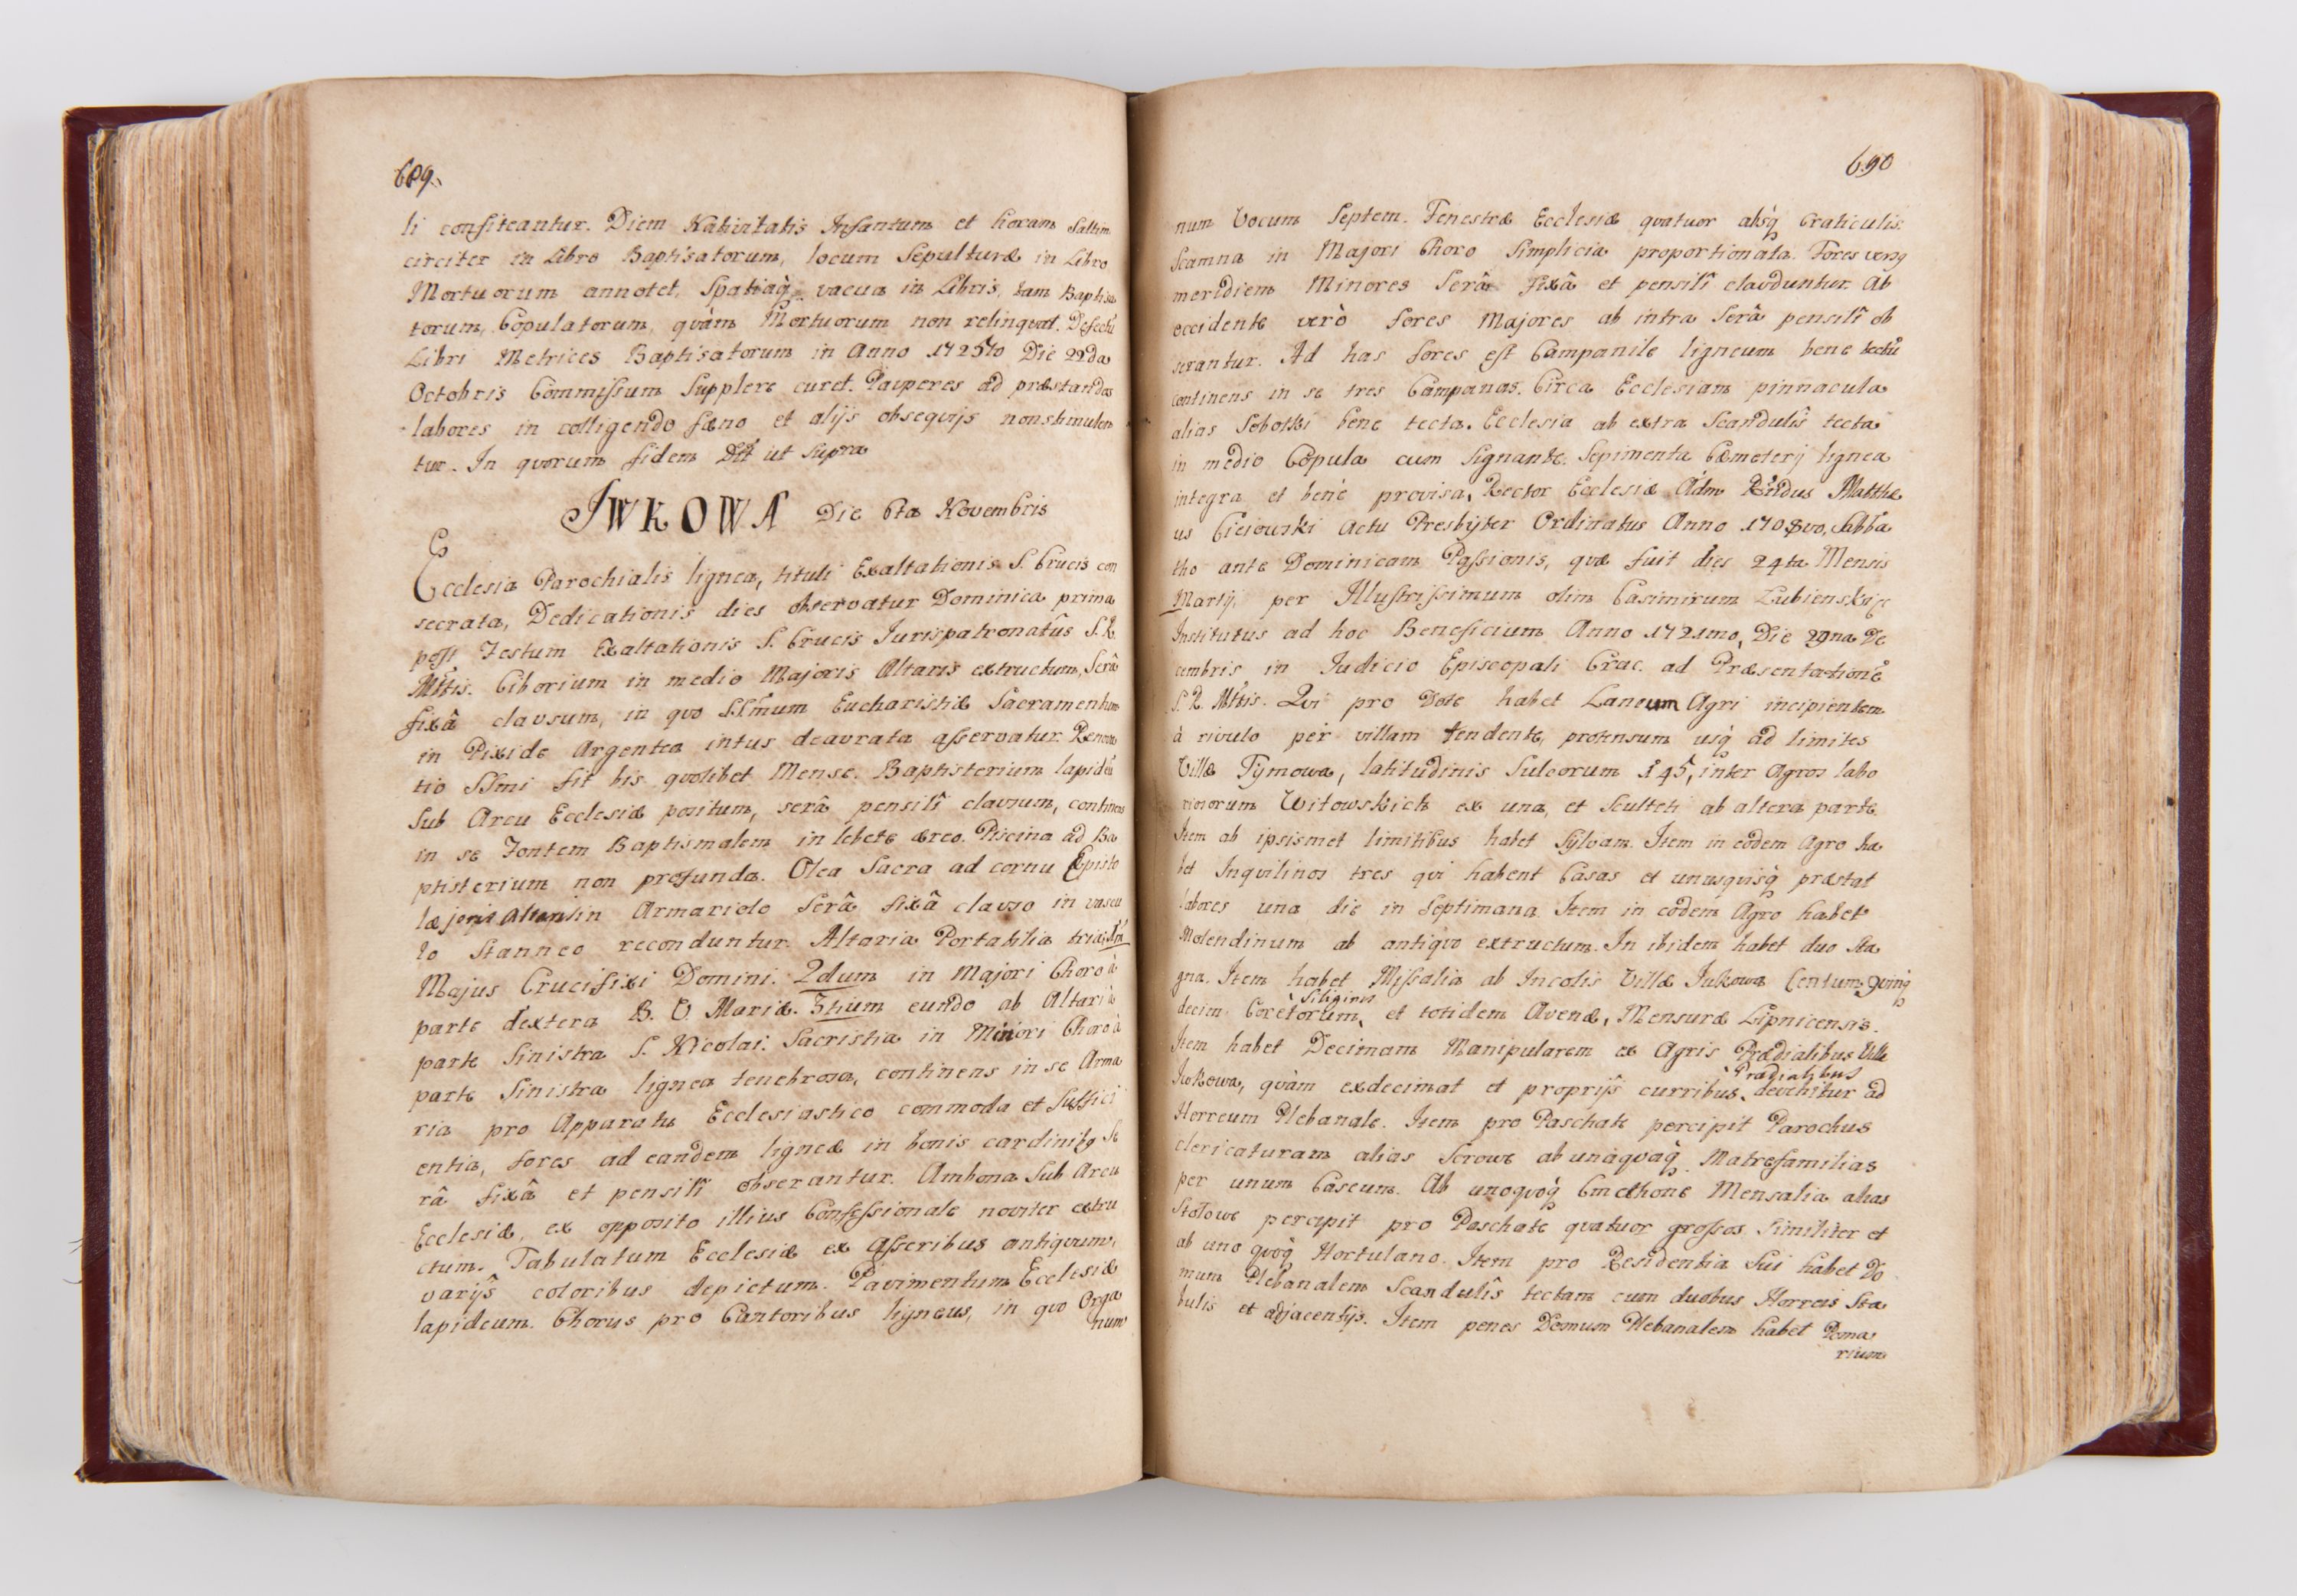 689.
li confiteantur. Diem Nativitatis Infantum et horam Saltim
circiter in Libro Baptisatorum, locum Sepulturæ in Libro
Mortuorum annotet, Spatiaq̀ vacua in Libris, tam Baptisa
torum, Copulatorum, quàm Mortuorum non relinquat. Defectũ
Libri Metrices Baptisatorum in Anno 1725to Die 22da
Octobris Commissum Supplere curet. Pauperes ad præstandos
labores in colligendo fæno et alijs obsequijs non stimulen
tur. In quorum fidem Dtt ut Supra
IWKOWA Die 6ta Novembris
Ecclesia Parochialis lignea, tituli Exaltationis S. Crucis con
secrata, Dedicationis dies observatur Dominica prima
post Festum Exaltationis S. Crucis Jurispatronatûs S. R.
Mttis. Ciborium in medio Majoris Altaris extructum, Serâ
fixâ clausum, in quo SSmum Eucharistiæ Sacramentum
in Pixide Argentea intus deaurata asservatur. Renova
tio SSmi fit bis quolibet Mense. Baptisterium lapideũ
Sub Arcu Ecclesiæ positum, serâ pensili clausum, continens
in se Fontem Baptismalem in lebete æreo. Piscina ad Ba
ptisterium non profunda. Olea Sacra ad cornu Episto
læ in Armariolo Serâ fixâ clauso in vascu
lo Stanneo reconduntur. Altaria Portatilia tria,
Majus Crucifixi Domini. 2dum in Majori Choro à
parte dextera B. V. Mariæ. 3tium eundo ab Altari à
parte Sinistra S. Nicolai. Sacristia in Minori Choro à
parte Sinistra lignea tenebrosa, continens in se Arma
ria pro Apparatu Ecclesiastico commoda et Suffici
entia, fores ad eandem ligneæ in bonis cardinibq Se
râ fixâ et pensilî obserantur. Ambona Sub Arcu
Ecclesiæ, ex opposito illius Confessionale noviter extru
ctum. Tabulatum Ecclesiæ ex Asseribus antiquum,
varijs coloribus depictum. Pavimentum Ecclesiæ
lapideum. Chorus pro Cantoribus ligneus, in quo Orga
num
690
num Vocum Septem. Fenestræ Ecclesiæ quatuor absq̀ Craticulis.
Scamna in Majori Choro Simplicia proportionata. Fores versq
meridiem Minores Serâ fixâ et pensilî clauduntur. Ab
occidente verò fores Majores ab intra Serâ pensilî ob
serantur. Ad has fores est Campanile ligneum bene tectũ
continens in se tres Campanas. Circa Ecclesiam pinnacula
alias Sobotki bene tecta. Ecclesia ab extra Scandulis tecta
in medio Copula cum Signante. Sepimenta Cæmeterij lignea
integra et bene provisa. Rector Ecclesiæ Adm Rndus Matthæ
us Cieiowski Actu Presbyter Ordinatus Anno 1708vo, Sabba
tho ante Dominicam Passionis, quæ fuit dies 24ta Mensis
Martij, per Illustrissimum olim Casimirum Lubienski
Institutus ad hoc Beneficium Anno 1721mo, Die 29na De
cembris in Judicio Episcopali Crac. ad Præsentationẽ
S. R. Mttis. Qui pro Dote habet Laneum Agri incipientem
à rivulo per villam tendente, protensum usq̀ ad limites
Villæ Tymowa, latitudinis Sulcorum 145, inter Agros labo
riosorum Witowskich ex una, et Sculteti ab altera parte.
Item ab ipsismet limitibus habet Sylvam. Item in eodem Agro ha
bet Inquilinos tres qui habent Casas et unusquisq̀ præstat
labores una die in Septimana. Item in eodem Agro habet
Molendinum ab antiquo extructum. In ibidem habet duo Sta
gna. Item habet Missalia ab Incolis Villæ Jwkowa Centum quinq̀
decim Coretorum Siliginis, et totidem Avenæ, Mensuræ Lipnicensis.
Item habet Decimam Manipularem ex Agris Prædialibus Villæ
Jwkowa, quàm exdecimat et proprijs curribus Prædialibus devehitur ad
Horreum Plebanale. Item pro Paschate percipit Parochus
clericaturam alias Serowe ab unaquaq̀ Matrefamilias
per unum Caseum. Ab unoquoq̀ Cmethone Mensalia alias
Stołowe percipit pro Paschate quatuor grossos Similiter et
ab uno quoq̀ Hortulano. Item pro Residentia Sui habet Do
mum Plebanalem Scandulîs tectam cum duobus Horreis Sta
bulis et adjacentijs. Item penes Domum Plebanalem habet Poma
rium